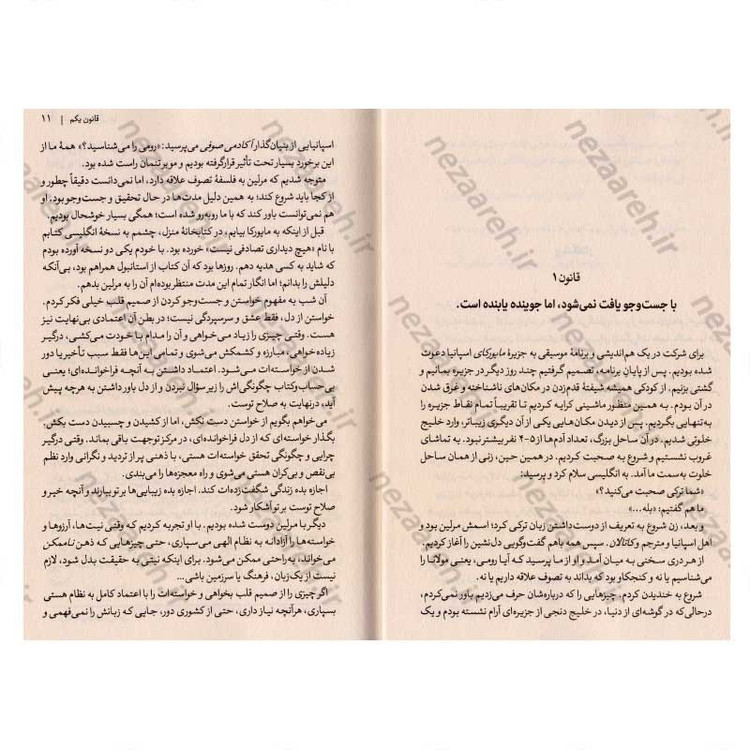 قانون ۱
با جست‌وجو یافت نمی‌شود، اما جوینده یابنده است.
برای شرکت در یک هم‌اندیشی و برنامهٔ موسیقی به جزیرهٔ مایورکای اسپانیا دعوت
شده بودیم. پس از پایان برنامه، تصمیم گرفتیم چند روز دیگر در جزیره بمانیم و
گشتی بزنیم. از کودکی همیشه شیفتهٔ قدم‌زدن در مکان‌های ناشناخته و غرق شدن
در آن بودم. به همین منظور ماشینی کرایه کردیم تا تقریباً تمام نقاط جزیره را
به‌تنهایی بگردیم. پس از دیدن مکان‌هایی یکی از آن دیگری زیباتر، وارد خلیج
خلوتی شدیم. در آن ساحل بزرگ، تعداد آدم‌ها از ۵-۴ نفر بیشتر نبود. به تماشای
غروب نشستیم و شروع به صحبت کردیم. در همین حین، زنی از همان ساحل
خلوت به سمت ما آمد. به انگلیسی سلام کرد و پرسید:
«شما ترکی صحبت می‌کنید؟»
ما هم گفتیم: «بله...»
و بعد، زن شروع به تعریف از دوست‌داشتن زبان ترکی کرد؛ اسمش مرلین بود و
اهل اسپانیا و مترجم و کاتالان. سپس همه باهم گفت‌وگویی دل‌نشین را آغاز کردیم.
از هر دری سخنی به میان آمد و او از ما پرسید که آیا رومی، یعنی مولانا را
می‌شناسیم یا نه و کنجکاو بود که بداند به تصوف علاقه داریم یا نه.
شروع به خندیدن کردم. چیزهایی را که درباره‌شان حرف می‌زدیم باور نمی‌کردم،
درحالی‌که در گوشه‌ای از دنیا، در خلیج دنجی از جزیره‌ای آرام نشسته بودم و یک
قانون یکم | ۱۱
اسپانیایی از بنیان‌گذار آکادمی صوفی می‌پرسید: «رومی را می‌شناسید؟» همهٔ ما از
این برخورد بسیار تحت تأثیر قرار گرفته بودیم و مو بر تنمان راست شده بود.
متوجه شدیم که مرلین به فلسفهٔ تصوف علاقه دارد، اما نمی‌دانست دقیقاً چطور و
از کجا باید شروع کند؛ به همین دلیل مدت‌ها در حال تحقیق و جست‌وجو بود. او
هم نمی‌توانست باور کند که با ما روبه‌رو شده است؛ همگی بسیار خوشحال بودیم.
قبل از اینکه به مایورکا بیایم، در کتابخانهٔ منزل، چشمم به نسخهٔ انگلیسی کتابم
با نام «هیچ دیداری تصادفی نیست» خورده بود. با خودم یکی دو نسخه آورده بودم
که شاید به کسی هدیه دهم. روزها بود که آن کتاب از استانبول همراهم بود، بی‌آنکه
دلیلش را بدانم؛ اما انگار تمام این مدت منتظر بوده‌ام آن را به مرلین بدهم.
آن شب به مفهوم خواستن و جست‌وجو کردن از صمیم قلب خیلی فکر کردم.
خواستن از دل، فقط عشق و سرسپردگی نیست؛ در بطن آن اعتمادی بی‌نهایت نیز
هست. وقتی چیزی را زیاد می‌خواهی و آن را مدام با خودت می‌کشی، درگیر
زیاده‌خواهی، مبارزه و کشمکش می‌شوی و تمامی این‌ها فقط سبب تأخیر یا دور
شدن از خواسته‌ات می‌شود. اعتماد داشتن به آنچه فراخوانده‌ای؛ یعنی
بی‌حساب‌وکتاب چگونگی‌اش را زیر سؤال نبردن و از دل باور داشتن به هرچه پیش
آید، درنهایت به صلاح توست.
می‌خواهم بگویم از خواستن دست نکش، اما از کشیدن و چسبیدن دست بکش.
بگذار خواسته‌ای که از دل فراخوانده‌ای، در مرکز توجهت باقی بماند. وقتی درگیر
چرایی و چگونگی تحقق خواسته‌ات هستی، با ذهنی پر از تردید و نگرانی وارد نظم
بی‌نقص و بی‌کران هستی می‌شوی و راه معجزه‌ها را می‌بندی.
اجازه بده زندگی شگفت‌زده‌ات کند. اجازه بده زیبایی‌ها بر تو ببارند و آنچه خیر و
صلاح توست بر تو آشکار شود.
دیگر با مرلین دوست شده بودیم. با او تجربه کردیم که وقتی نیت‌ها، آرزوها و
خواسته‌ها را آزادانه به نظام الهی می‌سپاری، حتی چیزهایی که ذهن ناممکن
می‌خواند، به‌راحتی ممکن می‌شود. برای اینکه نیتی به حقیقت بدل شود، لازم
نیست از یک زبان، فرهنگ یا سرزمین باشی...
اگر چیزی را از صمیم قلب بخواهی و خواسته‌ات را با اعتماد کامل به نظام هستی
بسپاری، هرآنچه نیاز داری، حتی از کشوری دور، جایی که زبانش را نمی‌فهمی و
nezaareh.ir